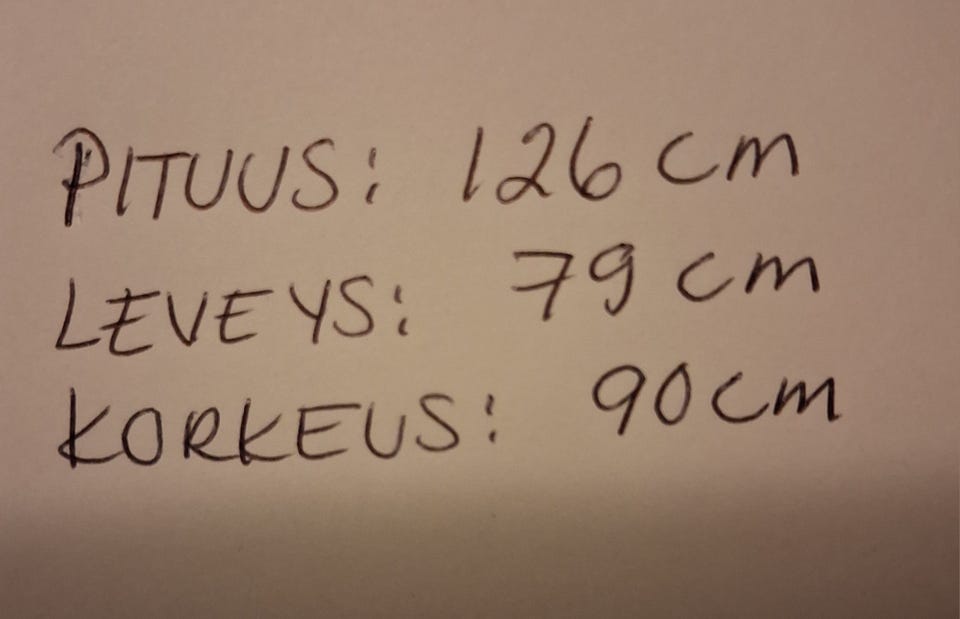 PITUUS: 126 cm
LEVEYS: 79 cm
KORKEUS: 90 cm